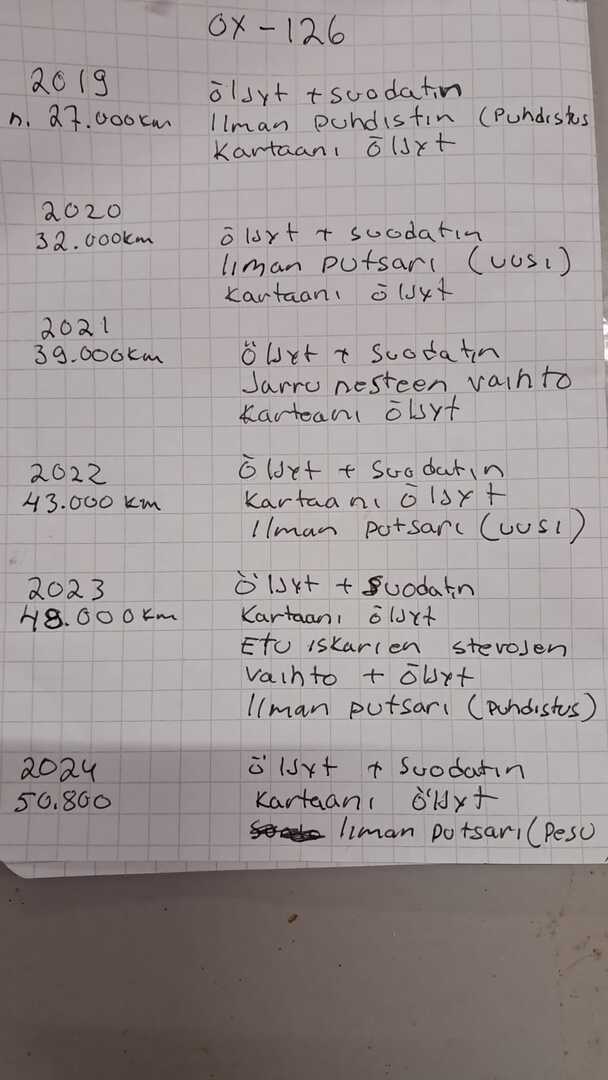 OX-126
2019 Öljyt + suodatin
n. 27.000km Ilman puhdistin (Puhdistus
Kartaani Öljyt
2020
32.000km Öljyt + suodatin
Ilman putsari (uusi)
Kartaani Öljyt
2021
39.000km Öljyt + suodatin
Jarru nesteen vaihto
Karteani Öljyt
2022 Öljyt + suodatin
43.000 km Kartaani Öljyt
Ilman putsari (uusi)
2023 Öljyt + suodatin
48.000km Kartaani Öljyt
Etu iskarien stevojen
vaihto + Öljyt
Ilman putsari (puhdistus)
2024 Öljyt + suodatin
50.800 Kartaani Öljyt
Ilman putsari (Pesu